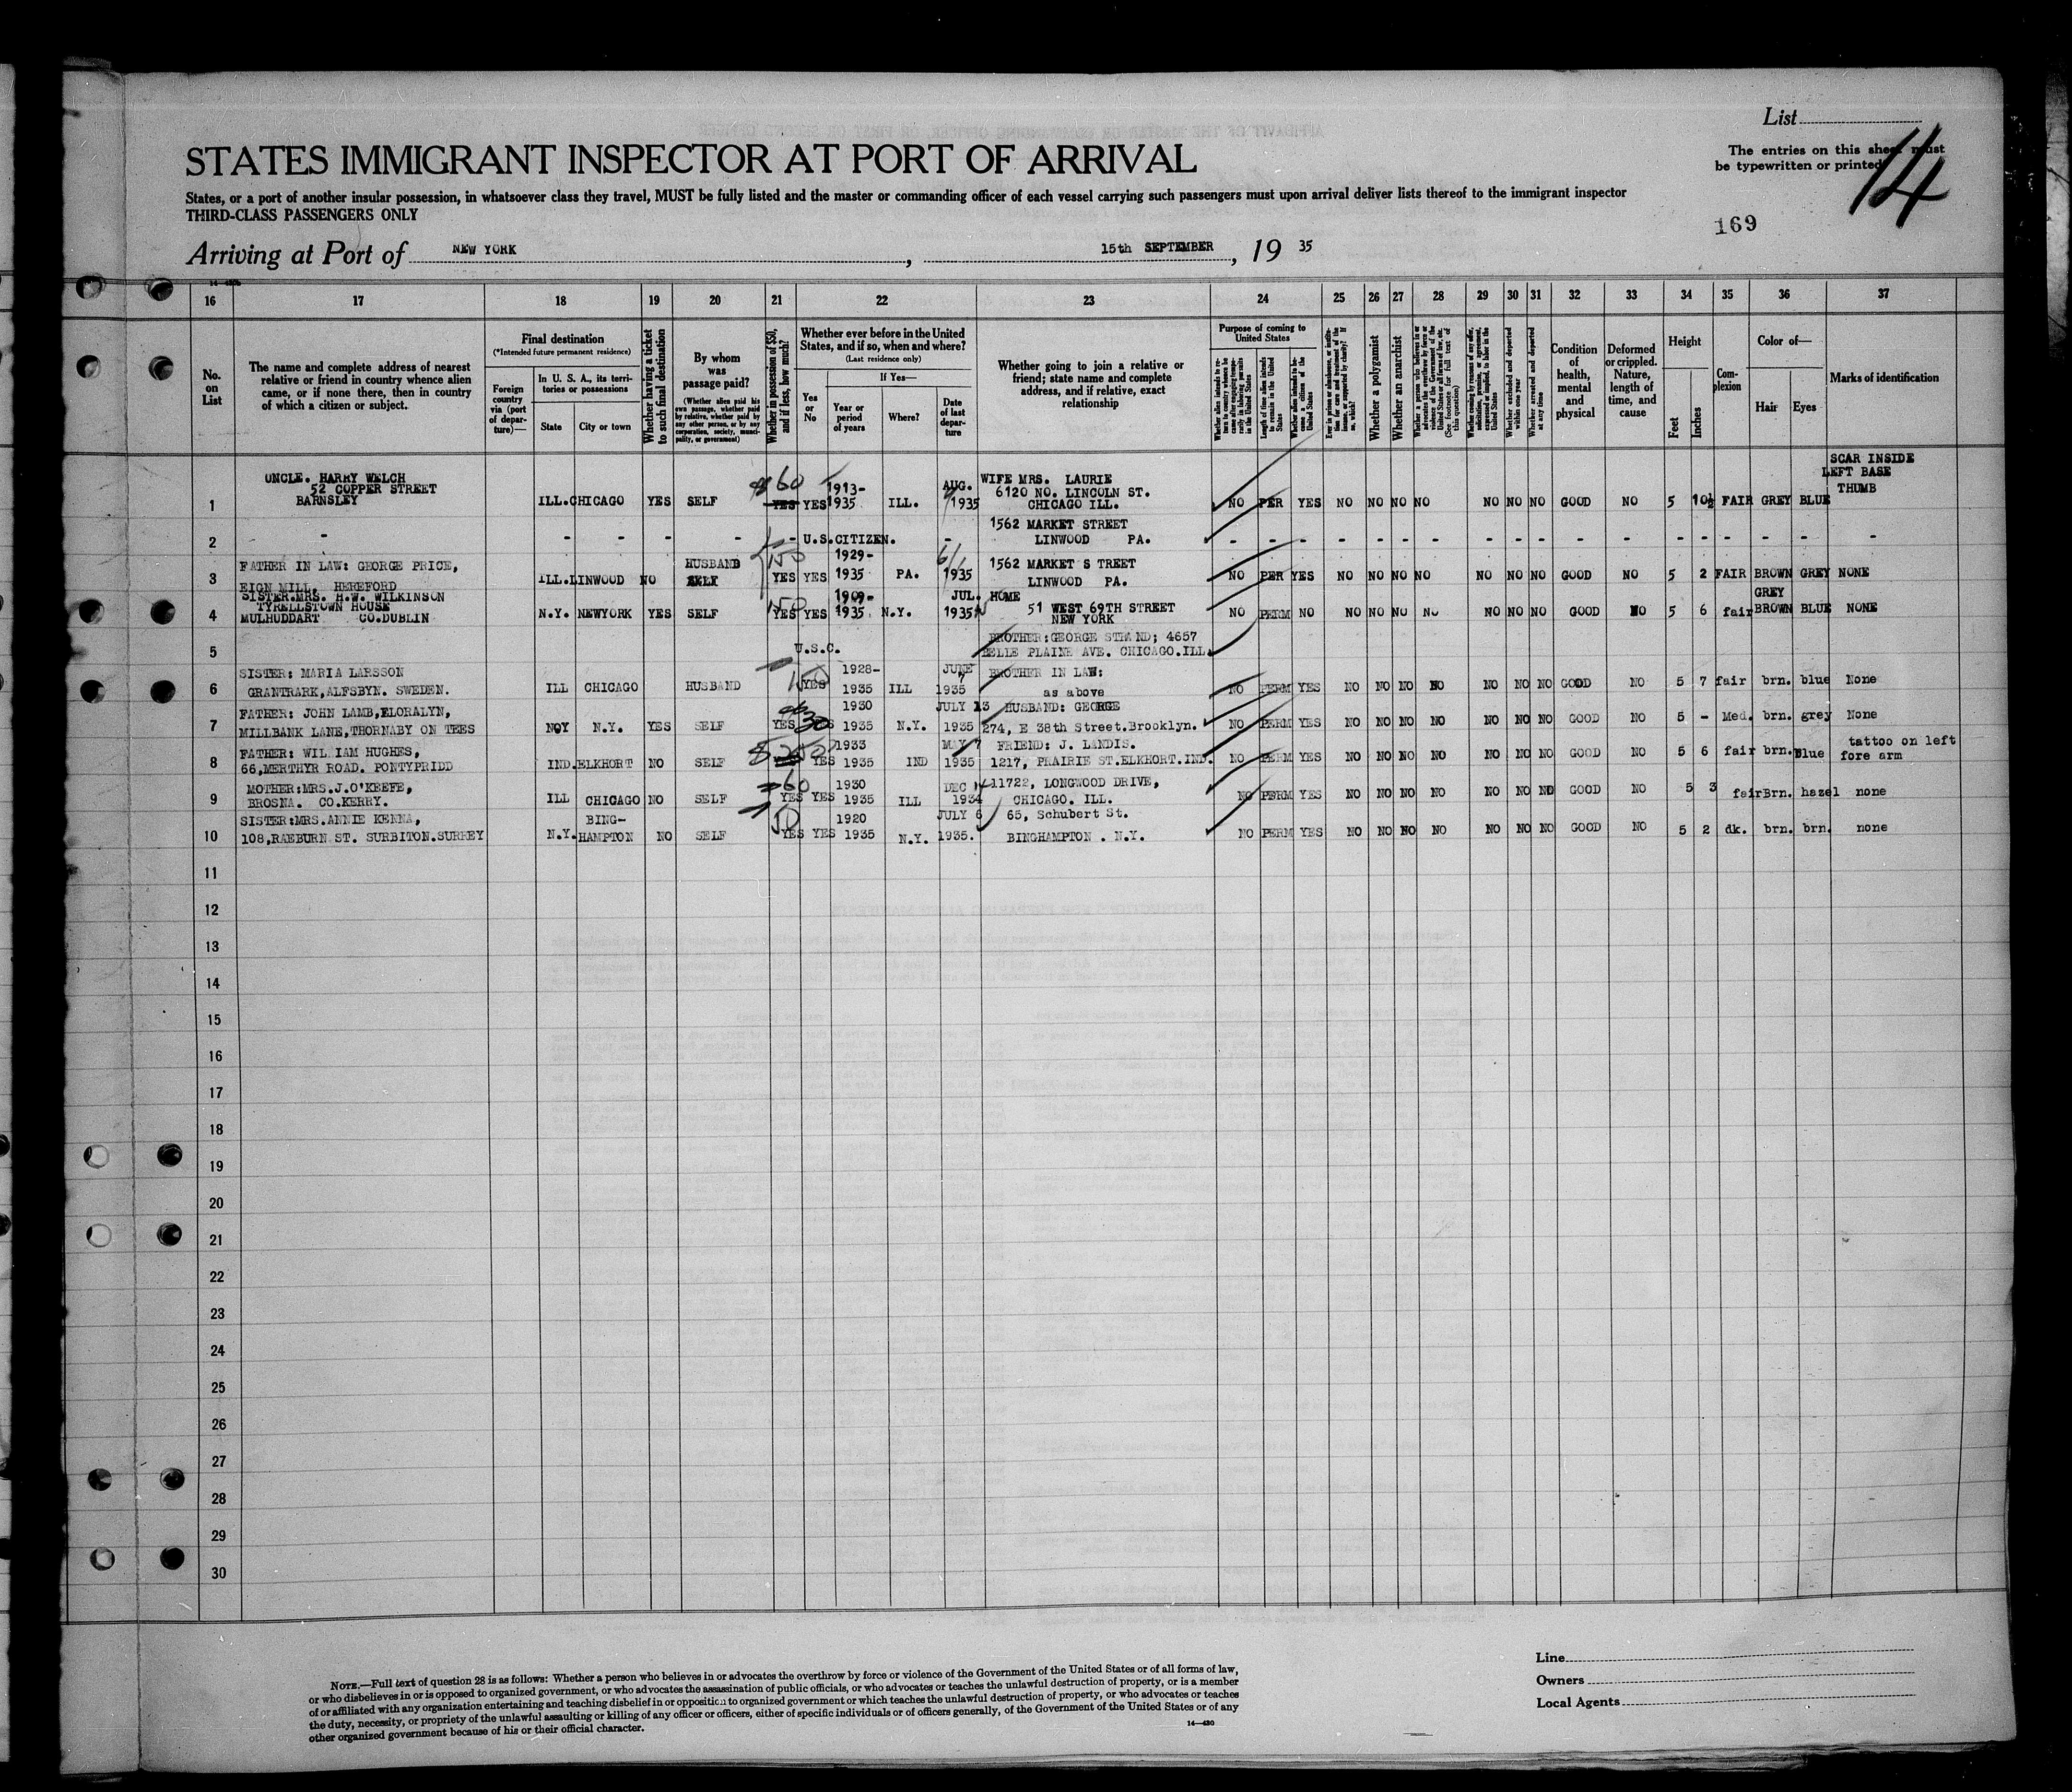 List
The entries on this sheet must
be typewritten or printed
14
169
STATES IMMIGRANT INSPECTOR AT PORT OF ARRIVAL
States, or a port of another insular possession, in whatsoever class they travel, MUST be fully listed and the master or commanding officer of each vessel carrying such passengers must upon arrival deliver lists thereof to the immigrant inspector
THIRD-CLASS PASSENGERS ONLY
Arriving at Port of NEW YORK, 15th SEPTEMBER, 19 35
16 17 18 19 20 21 22 23 24 25 26 27 28 29 30 31 32 33 34 35 36 37
No. on List
The name and complete address of nearest relative or friend in country whence alien came, or if none there, then in country of which a citizen or subject.
Final destination
(*Intended future permanent residence)
Foreign country via (port of departure)—
In U. S. A., its territories or possessions
State
City or town
Whether having a ticket to such final destination
By whom was passage paid?
(Whether alien paid his own passage, whether paid by relative, whether paid by any other person, or by any corporation, society, municipality, or government)
Whether in possession of $50, and if less, how much?
Whether ever before in the United States, and if so, when and where?
(Last residence only)
Yes or No
If Yes—
Year or period of years
Where?
Date of last departure
Whether going to join a relative or friend; state name and complete address, and if relative, exact relationship
Purpose of coming to United States
Length of time alien intends to remain in the United States
Whether alien intends to become a citizen of the United States
Whether a polygamist
Whether an anarchist
(See footnote for full text of this question)
Whether excluded and deported within one year
Whether arrested and deported at any time
Condition of health, mental and physical
Deformed or crippled. Nature, length of time, and cause
Height
Feet
Inches
Complexion
Color of—
Hair
Eyes
Marks of identification
1 UNCLE. HARRY WELCH 52 COPPER STREET BARNSLEY ILL. CHICAGO YES SELF $60 YES YES 1913-1935 ILL. AUG. 1935 WIFE MRS. LAURIE 6120 NO. LINCOLN ST. CHICAGO ILL. NO PER YES NO NO NO NO NO NO NO GOOD NO 5 10½ FAIR GREY BLUE SCAR INSIDE LEFT BASE THUMB
2 - - - - - - U.S.CITIZEN. - 1562 MARKET STREET LINWOOD PA. - - - - - - - - - - - - - - - - - -
3 FATHER IN LAW: GEORGE PRICE, EIGN MILL, HEREFORD ILL. LINWOOD NO HUSBAND SELF 150 YES YES 1929-1935 PA. 6/1 1935 1562 MARKET S TREET LINWOOD PA. NO PER YES NO NO NO NO NO NO NO GOOD NO 5 2 FAIR BROWN GREY NONE
4 SISTER.MRS. H.W. WILKINSON TYRELLSTOWN HOUSE MULHUDDART CO.DUBLIN N.Y. NEWYORK YES SELF 150 YES YES 1909-1935 N.Y. JUL. 1935 HOME 51 WEST 69TH STREET NEW YORK NO PERM NO NO NO NO NO NO NO NO GOOD NO 5 6 fair GREY BROWN BLUE NONE
5 U.S.C. BROTHER:GEORGE STRAND; 4657 BELLE PLAINE AVE. CHICAGO.ILL.
6 SISTER: MARIA LARSSON GRANTRARK,ALFSBYN. SWEDEN. ILL CHICAGO HUSBAND 150 YES 1928-1935 ILL JUNE 1935 BROTHER IN LAW: as above NO PERM YES NO NO NO NO NO NO NO GOOD NO 5 7 fair brn. blue None
7 FATHER: JOHN LAMB,ELORALYN, MILLBANK LANE,THORNABY ON TEES NOY N.Y. YES SELF YES 30 YES 1930 1935 N.Y. JULY 13 1935 HUSBAND: GEORGE 274, E 38th Street.Brooklyn. NO PERM YES NO NO NO NO NO NO NO GOOD NO 5 - Med. brn. grey None
8 FATHER: WIL IAM HUGHES, 66,MERTHYR ROAD. PONTYPRIDD IND. ELKHORT NO SELF YES 1933 1935 IND MAY 7 1935 FRIEND: J. LANDIS. 1217, PRAIRIE ST.ELKHORT.IND. NO PERM YES NO NO NO NO NO NO NO GOOD NO 5 6 fair brn. Blue tattoo on left fore arm
9 MOTHER:MRS.J.O'KEEFE, BROSNA. CO.KERRY. ILL CHICAGO NO SELF 60 YES YES 1930 1935 ILL DEC 1934 11722, LONGWOOD DRIVE, CHICAGO. ILL. NO PERM YES NO NO NO NO NO NO NO GOOD NO 5 3 fair Brn. hazel none
10 SISTER:MRS.ANNIE KENNA, 108,RAEBURN ST. SURBITON.SURREY N.Y. BING-HAMPTON NO SELF 50 YES YES 1920 1935 N.Y. JULY 6 1935. 65, Schubert St. BINGHAMPTON . N.Y. NO PERM YES NO NO NO NO NO NO NO GOOD NO 5 2 dk. brn. brn. none
11
12
13
14
15
16
17
18
19
20
21
22
23
24
25
26
27
28
29
30
NOTE.—Full text of question 28 is as follows: Whether a person who believes in or advocates the overthrow by force or violence of the Government of the United States or of all forms of law,
or who disbelieves in or is opposed to organized government, or who advocates the assassination of public officials, or who advocates or teaches the unlawful destruction of property, or is a member
of or affiliated with any organization entertaining and teaching disbelief in or opposition to organized government or which teaches the unlawful destruction of property, or who advocates or teaches
the duty, necessity, or propriety of the unlawful assaulting or killing of any officer or officers, either of specific individuals or of officers generally, of the Government of the United States or of any
other organized government because of his or their official character.
14—430
Line
Owners
Local Agents